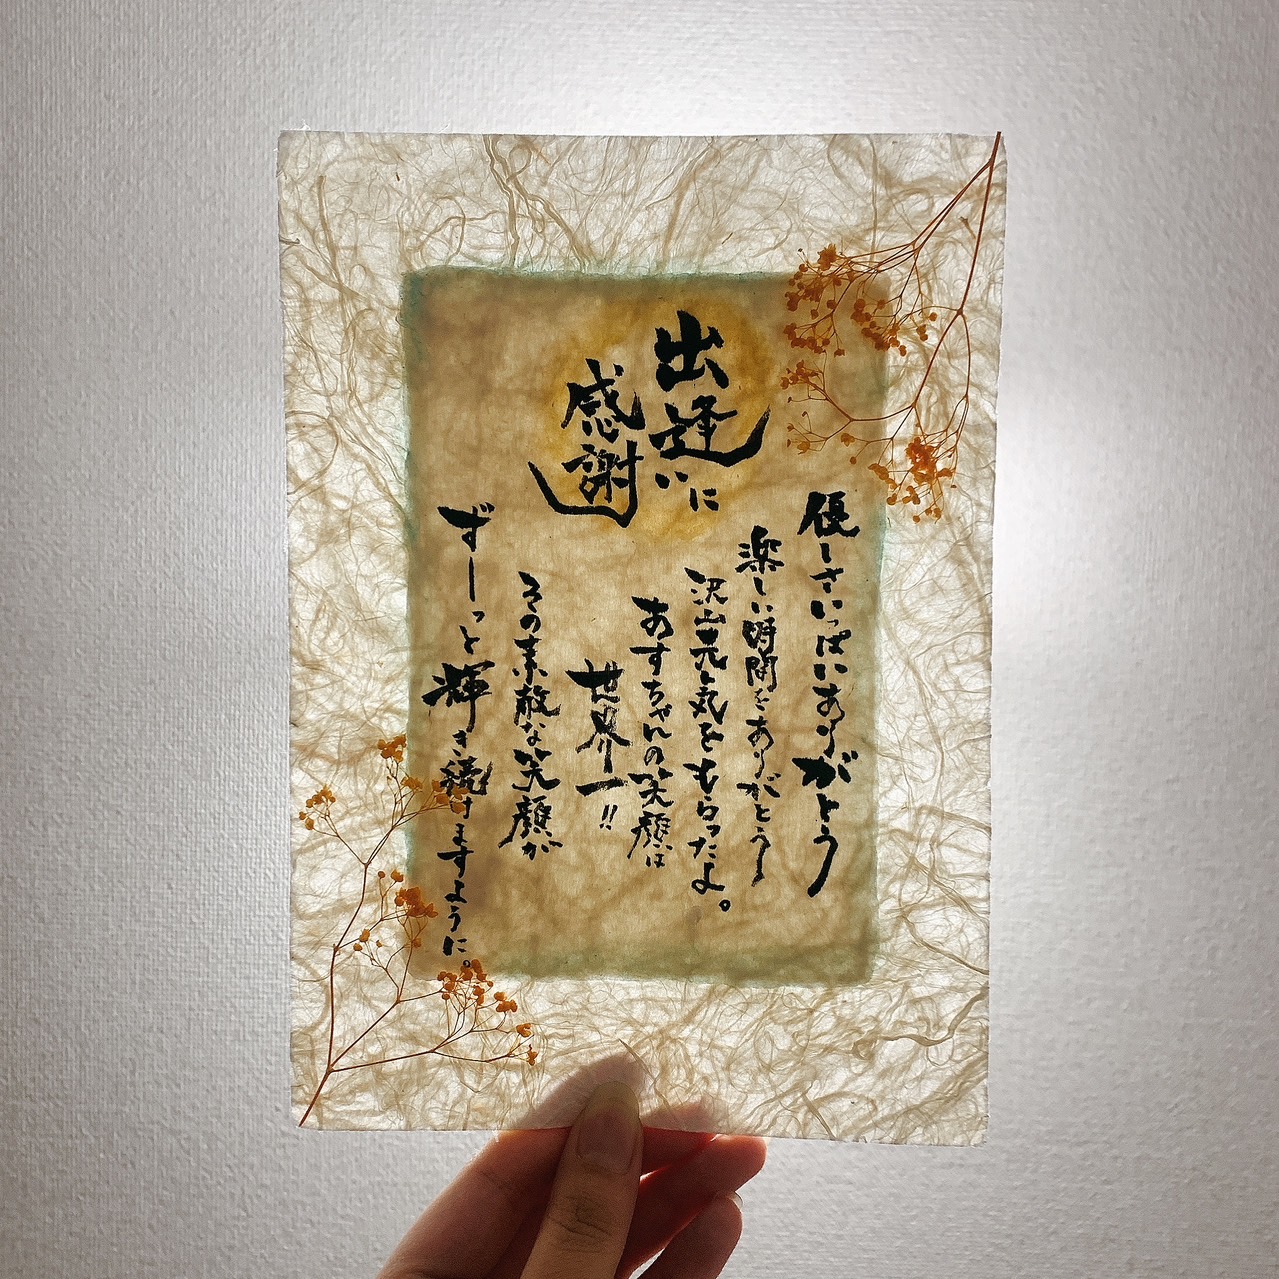 出逢いに
感謝
優しさいっぱいありがとう
楽しい時間をありがとう
沢山元気をもらったよ。
あすちゃんの笑顔は
世界一!!
その素敵な笑顔が
ずーっと輝き続けますように。